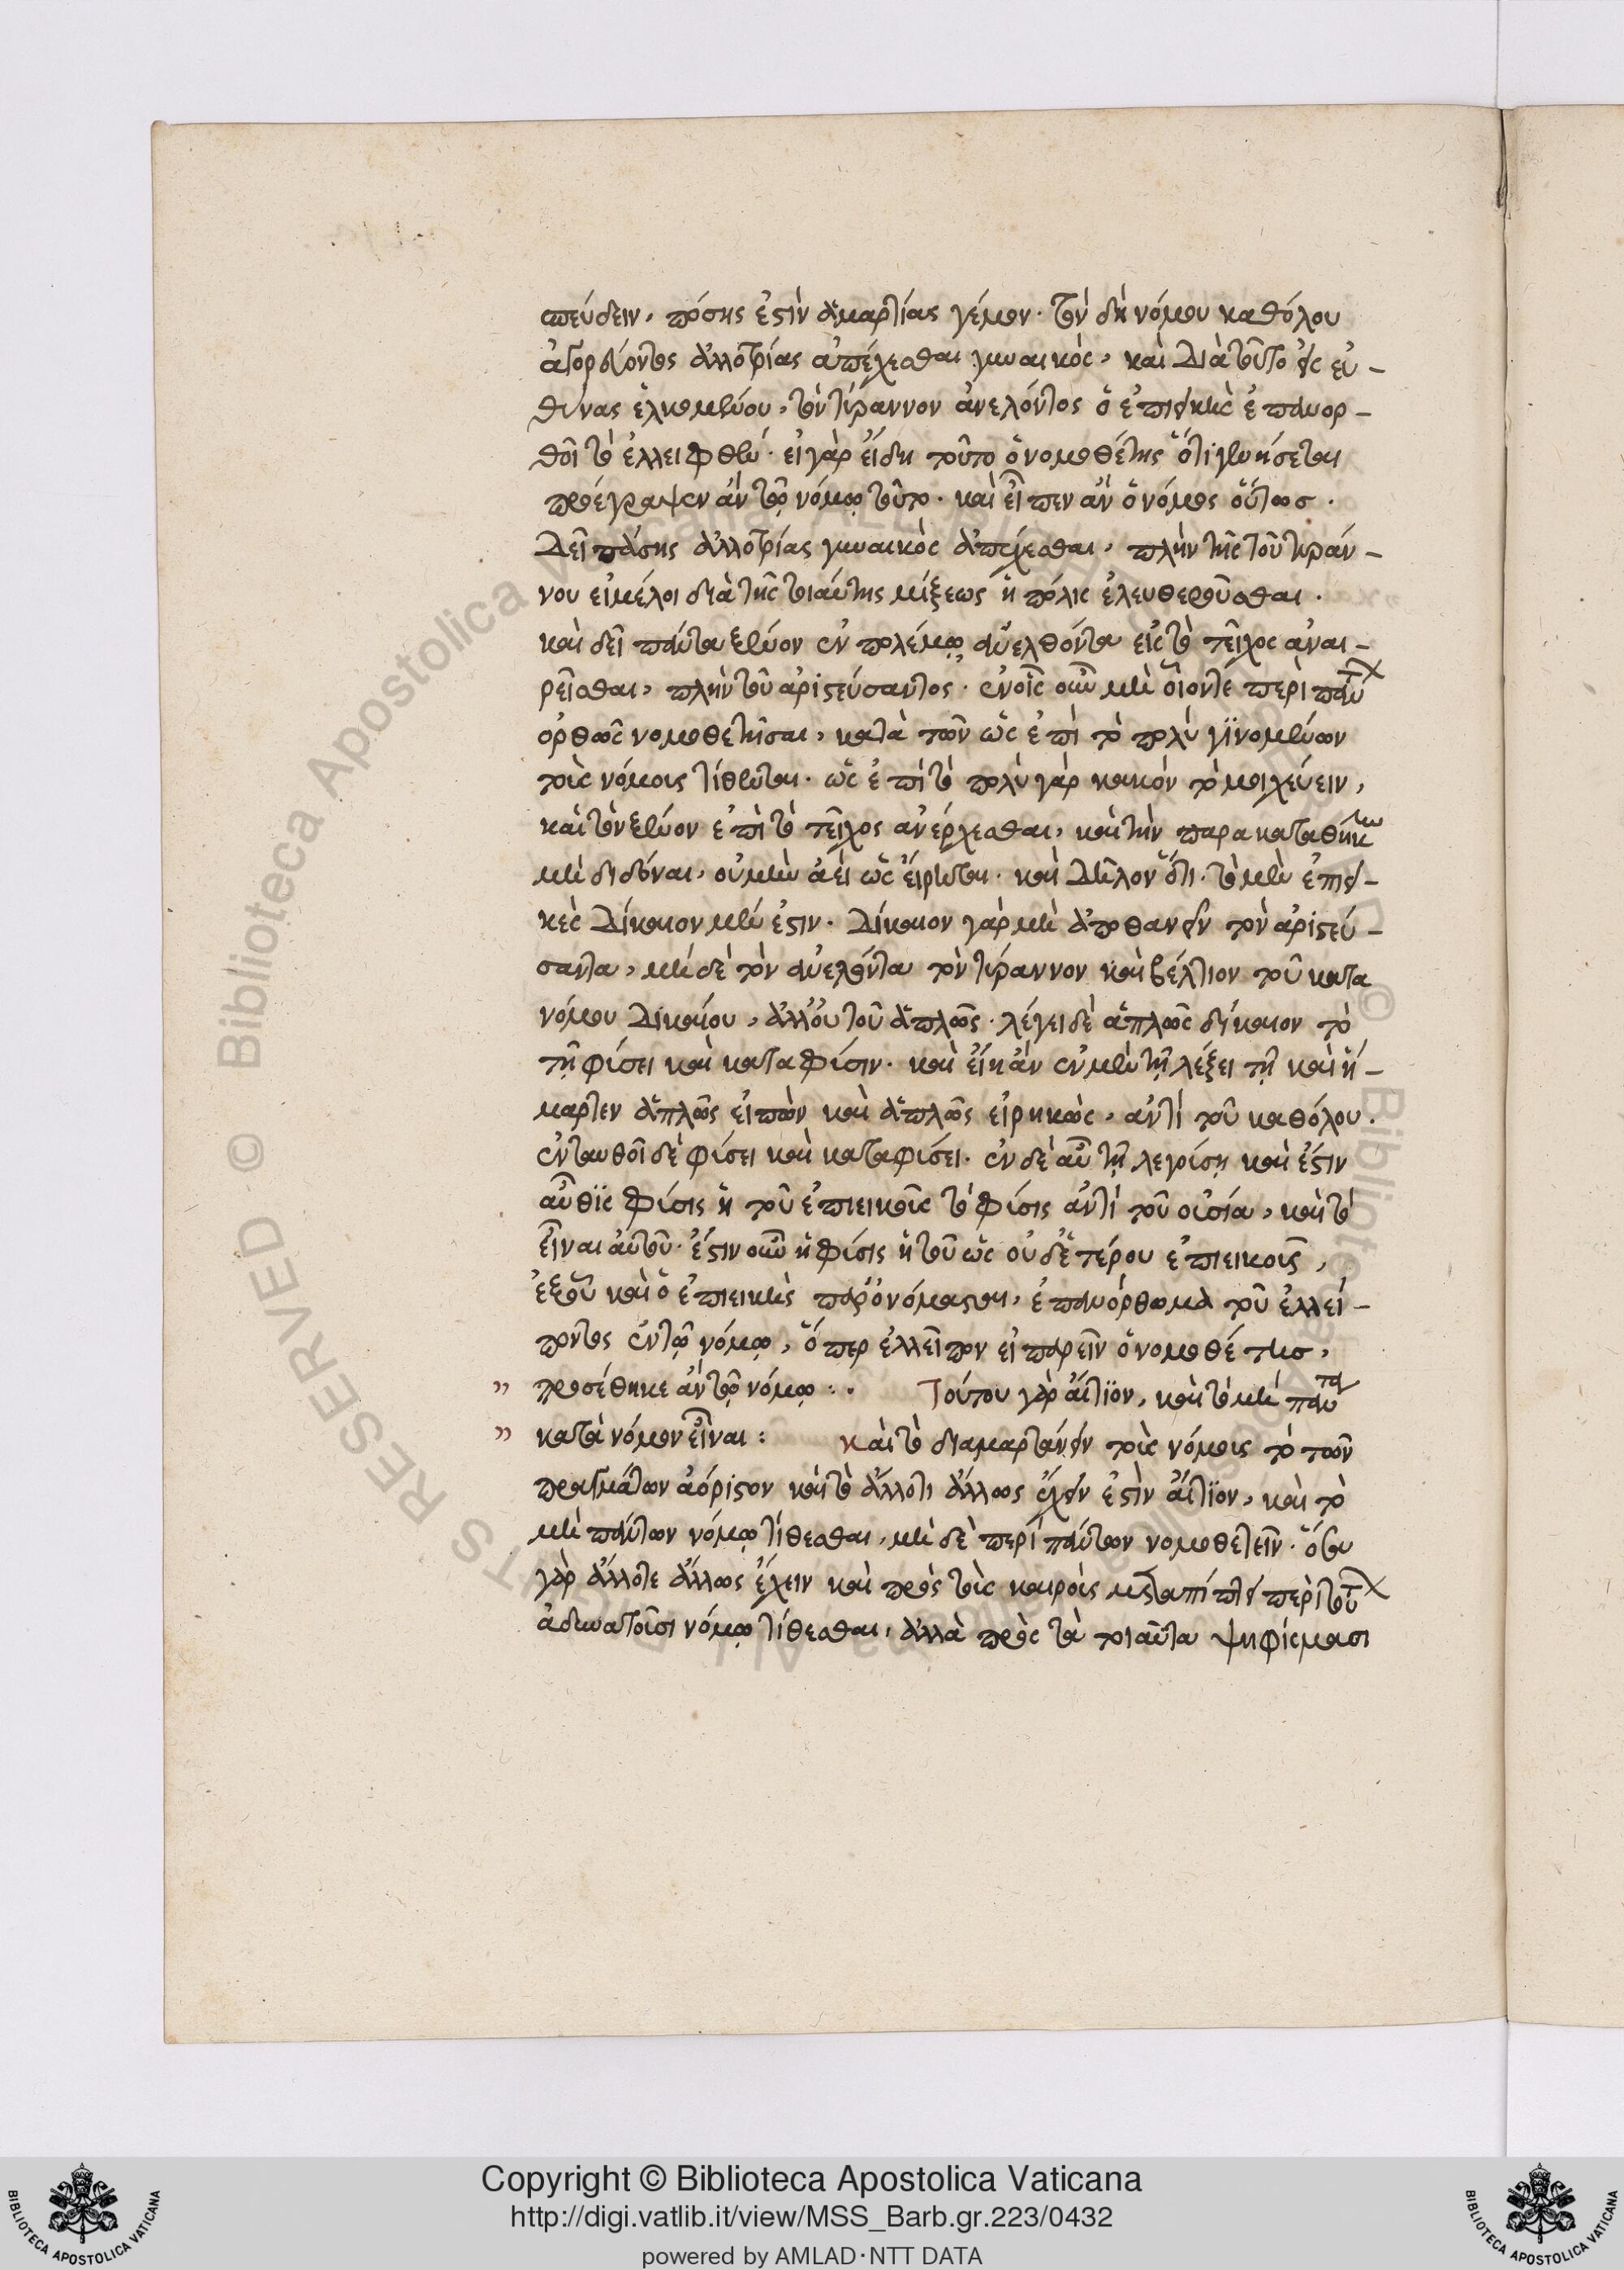 σπεύδειν, πόσης ἐστὶν ἁμαρτίας γέμον. τοῦ δὴ νόμου καθόλου
ἀγορεύοντος ἀλλοτρίας ἀπέχεσθαι γυναικὸς, καὶ διὰ τοῦτο εἰς εὐ-
θύνας ἑλκομένου, τὸν τύραννον ἀνελόντος ὁ ἐπιεικὴς ἐπανορ-
θοῖ τὸ ἐλλειφθέν. εἰ γὰρ εἴδη τοῦτο ὁ νομοθέτης ὅτι γενήσεται
προέγραψεν ἂν τῷ νόμῳ τοῦτο. καὶ εἶπεν ἂν ὁ νόμος οὕτως.
Δεῖ πάσης ἀλλοτρίας γυναικὸς ἀπέχεσθαι, πλὴν τῆς τοῦ τυράν-
νου εἰ μέλοι διὰ τῆς τοιαύτης μίξεως ἡ πόλις ἐλευθεροῦσθαι.
καὶ δεῖ πάντα ξένον ἐν πολέμῳ ἀνελθόντα εἰς τὸ τεῖχος ἀναι-
ρεῖσθαι, πλὴν τοῦ ἀριστεύσαντος. ἐν οἷς οὖν μὴ οἷόντε περὶ πάντων
ὀρθῶς νομοθετῆσαι, κατὰ τῶν ὡς ἐπὶ τὸ πολὺ γϊνομένων
τοῖς νόμοις τίθεται. ὡς ἐπὶ τὸ πολὺ γὰρ κακὸν τὸ μοιχεύειν,
καὶ τὸν ξένον ἐπὶ τὸ τεῖχος ἀνέρχεσθαι, καὶ τὴν παρακαταθήκην
μὴ διδόναι, οὐ μὴν ἀεὶ ὡς εἴρηται. καὶ δῆλον ὅτι. τὸ μὲν ἐπιει-
κὲς δίκαιον μέν ἐστιν. δίκαιον γὰρ μὴ ἀποθανεῖν τὸν ἀριστεύ-
σαντα, μὴ δὲ τὸν ἀνελόντα τὸν τύραννον καὶ βέλτιον τοῦ κατα
νόμου δικαίου, ἀλλ' οὐ τοῦ ἁπλῶς. λέγει δὲ ἁπλῶς δίκαιον τὸ
τῇ φύσει καὶ κατα φύσιν. καὶ εἴη ἂν ἐν μὲν τῇ λέξει τῇ καὶ ἡ-
μαρτεν ἁπλῶς εἰπὼν καὶ ἁπλῶς εἰρηκὼς, ἀντὶ τοῦ καθόλου.
ἐνταυθοῖ δὲ φύσει καὶ κατα φύσει. ἐν δὲ αὖ τῇ λεγούσῃ καὶ ἔστιν
αὖθϊς φύσις ἡ τοῦ ἐπιεικοῦς τὸ φύσις ἀντὶ τοῦ οὐσία, καὶ τὸ
εἶναι αὐτοῦ. ἔστιν οὖν ἡ φύσις ἡ τοῦ ὡς οὐδετέρου ἐπιεικοῖς,
ἐξ οὗ καὶ ὁ ἐπιεικὴς παρονόμασται, ἐπανόρθωμα τοῦ ἐλλεί-
ποντος ἐν τῷ νόμῳ, ὅπερ ἐλλεῖπον εἰ παρεῖν ὁ νομοθέτης,
" προσέθηκε ἂν τῷ νόμῳ :. Τούτου γὰρ αἴτϊον, καὶ τὸ μὴ πάντα
" κατὰ νόμον εἶναι : καὶ τὸ διαμαρτάνειν τοῖς νόμοις τὸ τῶν
πραγμάτων ἀόριστον καὶ τὸ ἄλλοτι ἄλλως ἔχειν ἐστὶν αἴτϊον, καὶ τὸ
μὴ πάντων νόμῳ τίθεσθαι, μὴ δὲ περὶ πάντων νομοθετεῖν. ὅταν
γὰρ ἄλλοτε ἄλλως ἔχειν καὶ πρὸς τοῖς καιροῖς μεταπίπτει περὶ τούτων
ἀδυνατοῦσι νόμῳ τίθεσθαι, ἀλλὰ πρὸς τὰ τοιαῦτα ψηφίσμασι
Copyright © Biblioteca Apostolica Vaticana
http://digi.vatlib.it/view/MSS_Barb.gr.223/0432
powered by AMLAD·NTT DATA
BIBLIOTECA APOSTOLICA VATICANA
BIBLIOTECA APOSTOLICA VATICANA